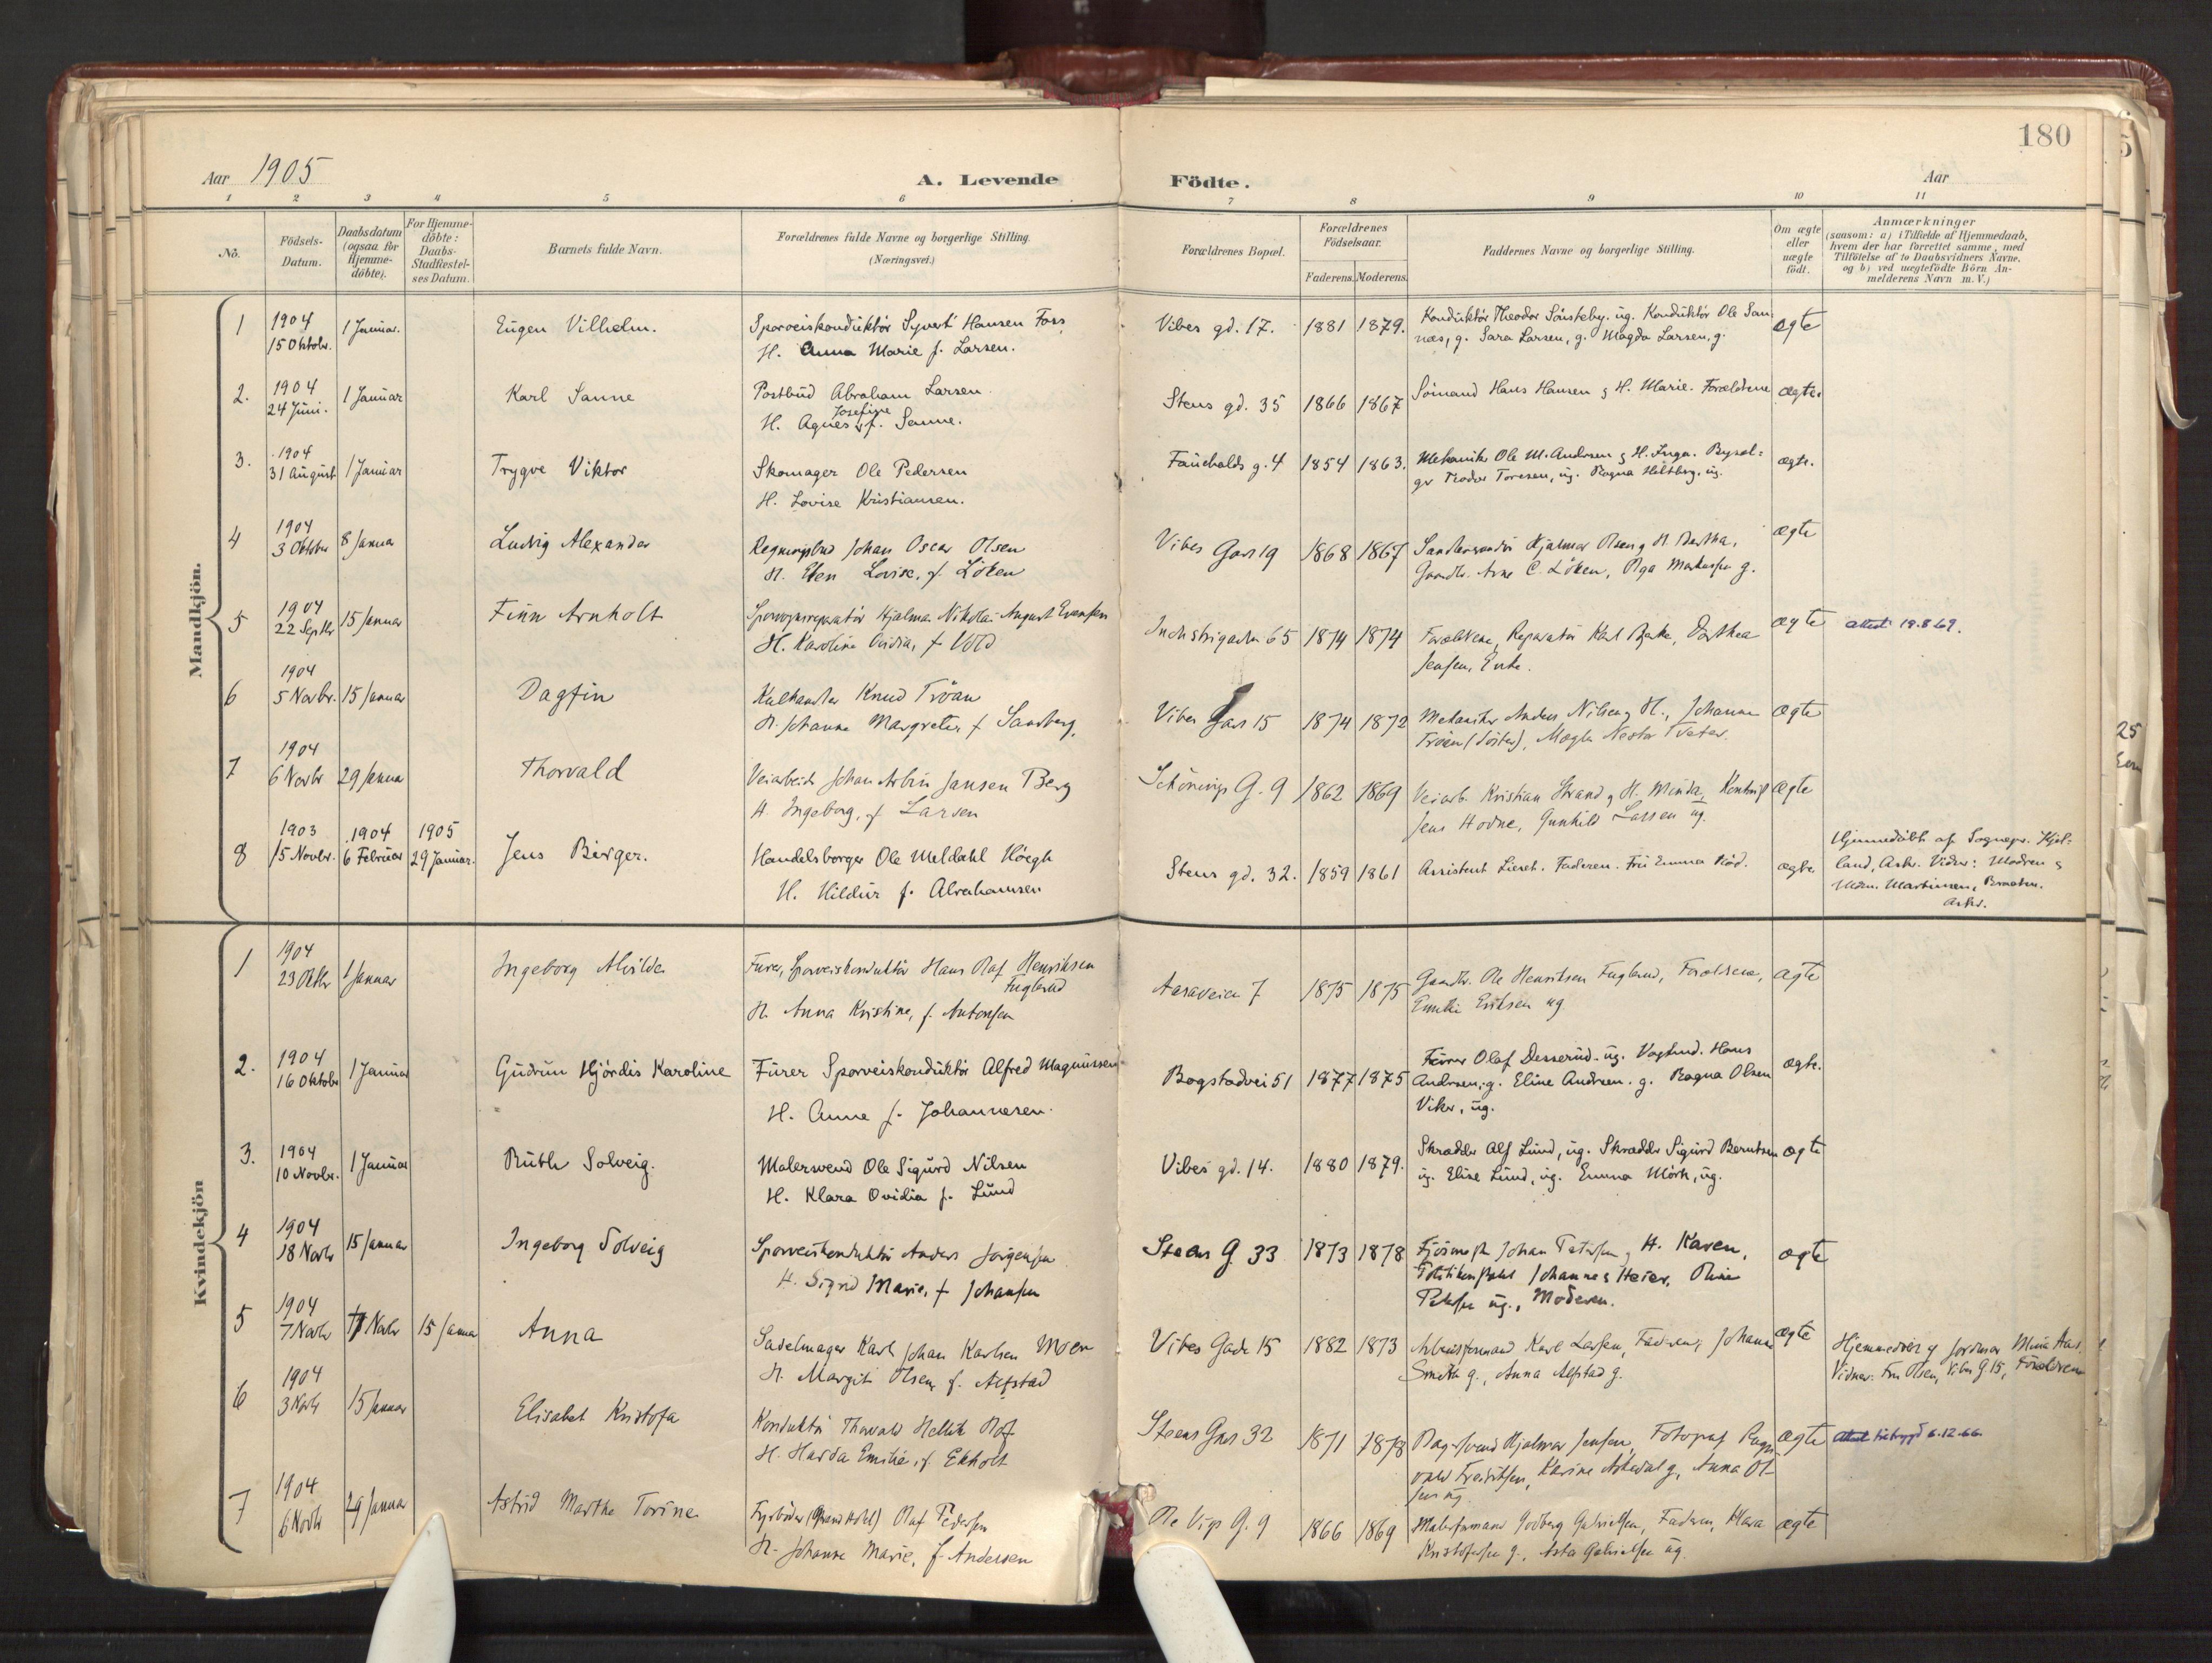 180
Aar 1905
A. Levende Födte.
Aar
1 2 3 4 5 6 7 8 9 10 11
No.
Födsels-Datum.
Daabsdatum (ogsaa for Hjemme-döbte).
For Hjemme-döbte: Daabs-Stadfæstel-ses Datum.
Barnets fulde Navn.
Forældrenes fulde Navne og borgerlige Stilling.
(Næringsvei.)
Forældrenes Bopæl.
Forældrenes Födselsaar.
Faderens. Moderens.
Faddernes Navne og borgerlige Stilling.
Om ægte eller uægte födt.
Anmærkninger
(saasom: a) i Tilfælde af Hjemmedaab,
hvem der har forrettet samme, med
Tilföielse af to Daabsvidners Navne.
og b) ved uægtefödte Börn An-
melderens Navn m.V.)
Mandkjön.
1 1904 15 Oktobr. 1 Januar. Eugen Vilhelm. Sporveiskonduktör Syvert Hansen Foss
H. Anna Marie f. Larsen.
Vibes gd. 17. 1881 1879. Konduktör Theodor Sönsteby. ug. Konduktör Ole San-
næs, g. Sara Larsen, g. Magda Larsen, g. ægte
2. 1904 24 Juni. 1 Januar Karl Sanne Postbud Abraham Larsen
H. Agnes Josefine f. Sanne.
Stens gd. 35 1866 1867 Sömand Hans Hansen & H. Marie. Forældrene ægte.
3. 1904 31 August 1 Januar Trygve Viktor Skomager Ole Pedersen
H. Lovise Kristiansen.
Fauchalds g. 4 1854 1863. Mekaniker Ole M. Andersen & H. Inga.
Toresen, ug. Ragna Heltberg. ug. ægte.
4 1904 3 Oktober 8 Januar Ludvig Alexander Regningsbud Johan Oscar Olsen
H. Ellen Lovise, f. Löken
Vibes Gade 19 1868 1867 Hjalmar Olsen & H. Bertha,
Gaardbr. Arne C. Löken, Olga g. ægte
5 1904 22 Septbr 15 Januar Finn Arnholt Hjalmar Nikolai August Evensen
H. Karoline f. Vold
Industrigaden 65 1874 1874 Forældrene, Reparatör Karl Dorthea
Jensen, Enke. ægte attest 19.8.69.
6 1904 5 Novbr. 15 Januar Dagfin Kulhandler Knud Tröan
H. Johanne Margrete, f. Sandberg.
Vibes Gade 15 1874 1872 Mekaniker Anders Nilsen & H., Johanne
Tröan (Söster), Nestor Tveter. ægte
7 1904 6 Novbr 29 Januar Thorvald Veiarbeider Johan Albin Jansen Berg
H. Ingeborg, f. Larsen
Schönings G. 9 1862 1869 Veiarb. Kristian Strand & H. Minda,
Jens Hovne, Gunhild Larsen ug. ægte
8 1903 15 Novbr. 1904 6 Februar 1905 29 Januar. Jens Birger. Handelsborger Ole Meldahl Höegh
H. Hildur f. Abrahamsen
Stens gd. 32. 1859 1861 Assistent Faderen. Fru Emma ægte
Hjemmedöbt af Sognepr. Hjel-
land, Asker. Vidner: Modren &
Martinsen, Braaten.
Asker.
Kvindekjön
1 1904 23 Oktbr 1 Januar Ingeborg Alvilde Furer, Sporveiskonduktör Hans Olaf Henriksen
Fuglerud
H. Anna Kristine, f. Antonsen
Aasaveien 7 1875 1875 Gaardbr. Ole Henriksen Fuglerud, Forældrene,
Emilie Eriksen ug ægte
2. 1904 16 Oktobr 1 Januar Gudrun Hjördis Karoline Furer Sporveiskonduktör Alfred Magnussen
H. Anne f. Johannesen.
Bogstadvei 51 1877 1875 Furer Olaf Desserud. ug. Vognmd. Hans
Andersen, g. Eline Andresen. g. Ragna Olsen
Viker, ug. ægte.
3. 1904 10 Novbr. 1 Januar Ruth Solveig. Malersvend Ole Sigurd Nilsen
H. Klara Ovidia f. Lund
Vibes gd. 14. 1880 1879. Skrædder Alf Lund, ug. Skrædder Sigurd Berntsen
ug. Elise Lund, ug. Emma Mörk, ug. ægte
4 1904 18 Novbr 15 Januar Ingeborg Solveig Sporveiskonduktör Anders Jörgensen
H. Sigrid Marie, f Johansen
Steens G. 33 1873 1878 Johan & H. Karen,
Johannes Heier, Oline
ug., Moderen. ægte
5 1904 7 Novbr 17 Novbr 15 Januar Anna Sadelmager Karl Johan Karlsen Moen
H. Margit Olsen, f. Alfstad
Vibes Gade 15 1882 1873 Arbeidsformand Karl Larsen, Faderen, Johanne
Smith g., Anna Alfstad g. ægte
Hjemmedöbt af Jordmor Mina Aas.
Vidner: Fru Olsen, Vibes G 15, Forældrene
6 1904 3 Novbr 15 Januar Elisabet Kristofa Konduktör Thorvald Hellik Olaf
H. Harda Emilie, f. Ekholt
Steens Gade 32 1871 1878 Hjalmar Jensen, Fotograf Ragn-
vald Fredriksen, Karine g., Anna Ol-
sen ug. ægte 6.12.66.
7 1904 6 Novbr 29 Januar Astrid Marthe Torine Fyrböder (Grand Hotel) Olaf Pedersen
H. Johanne Marie, f. Andersen
Ole Vigs G. 9 1866 1869 Malerformand Godberg Gabrielsen, Faderen, Klara
Kristofersen g., Asta Gabrielsen ug. ægte